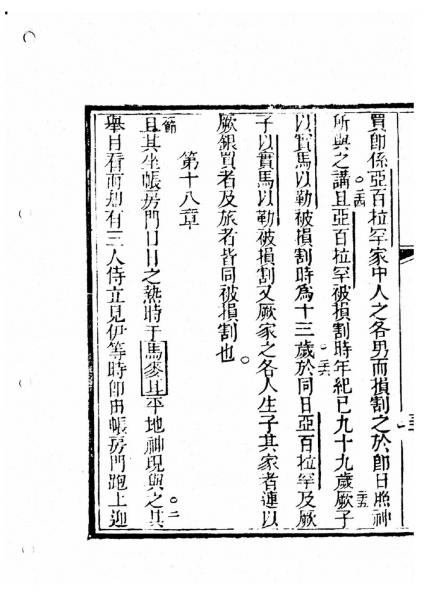 買即係亞百拉罕家中人之各男而損割之於即日照神
所與之講○二四且亞百拉罕被損割時年紀已九十九歲○二五厥子
以實馬以勒被損割時為十三歲○二六於同日亞百拉罕及厥
子以實馬以勒被損割又厥家之各人生子其家者連以
厥銀買者及旅者皆同被損割也○
第十八章
節且其坐帳房門口日之熱時于馬麥耳平地神現與之○二其
舉目看而却有三人侍立見伊等時即由帳房門跑上迎